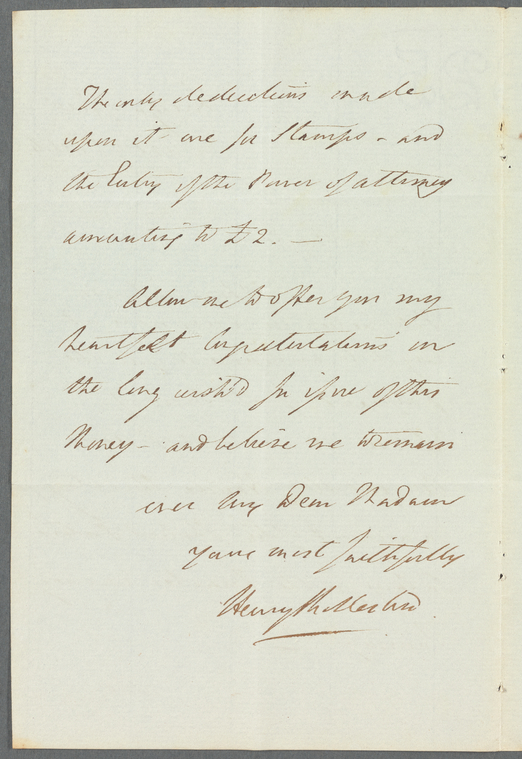 The only deductions made
upon it are for Stamps - and
the Entry of the Power of attorney
amounting to £2. —
Allow me to offer you my
heartfelt Congratulations on
the long wish'd for issue of this
Money - and believe me to remain
ever My Dear Madam
yours most faithfully
Henry